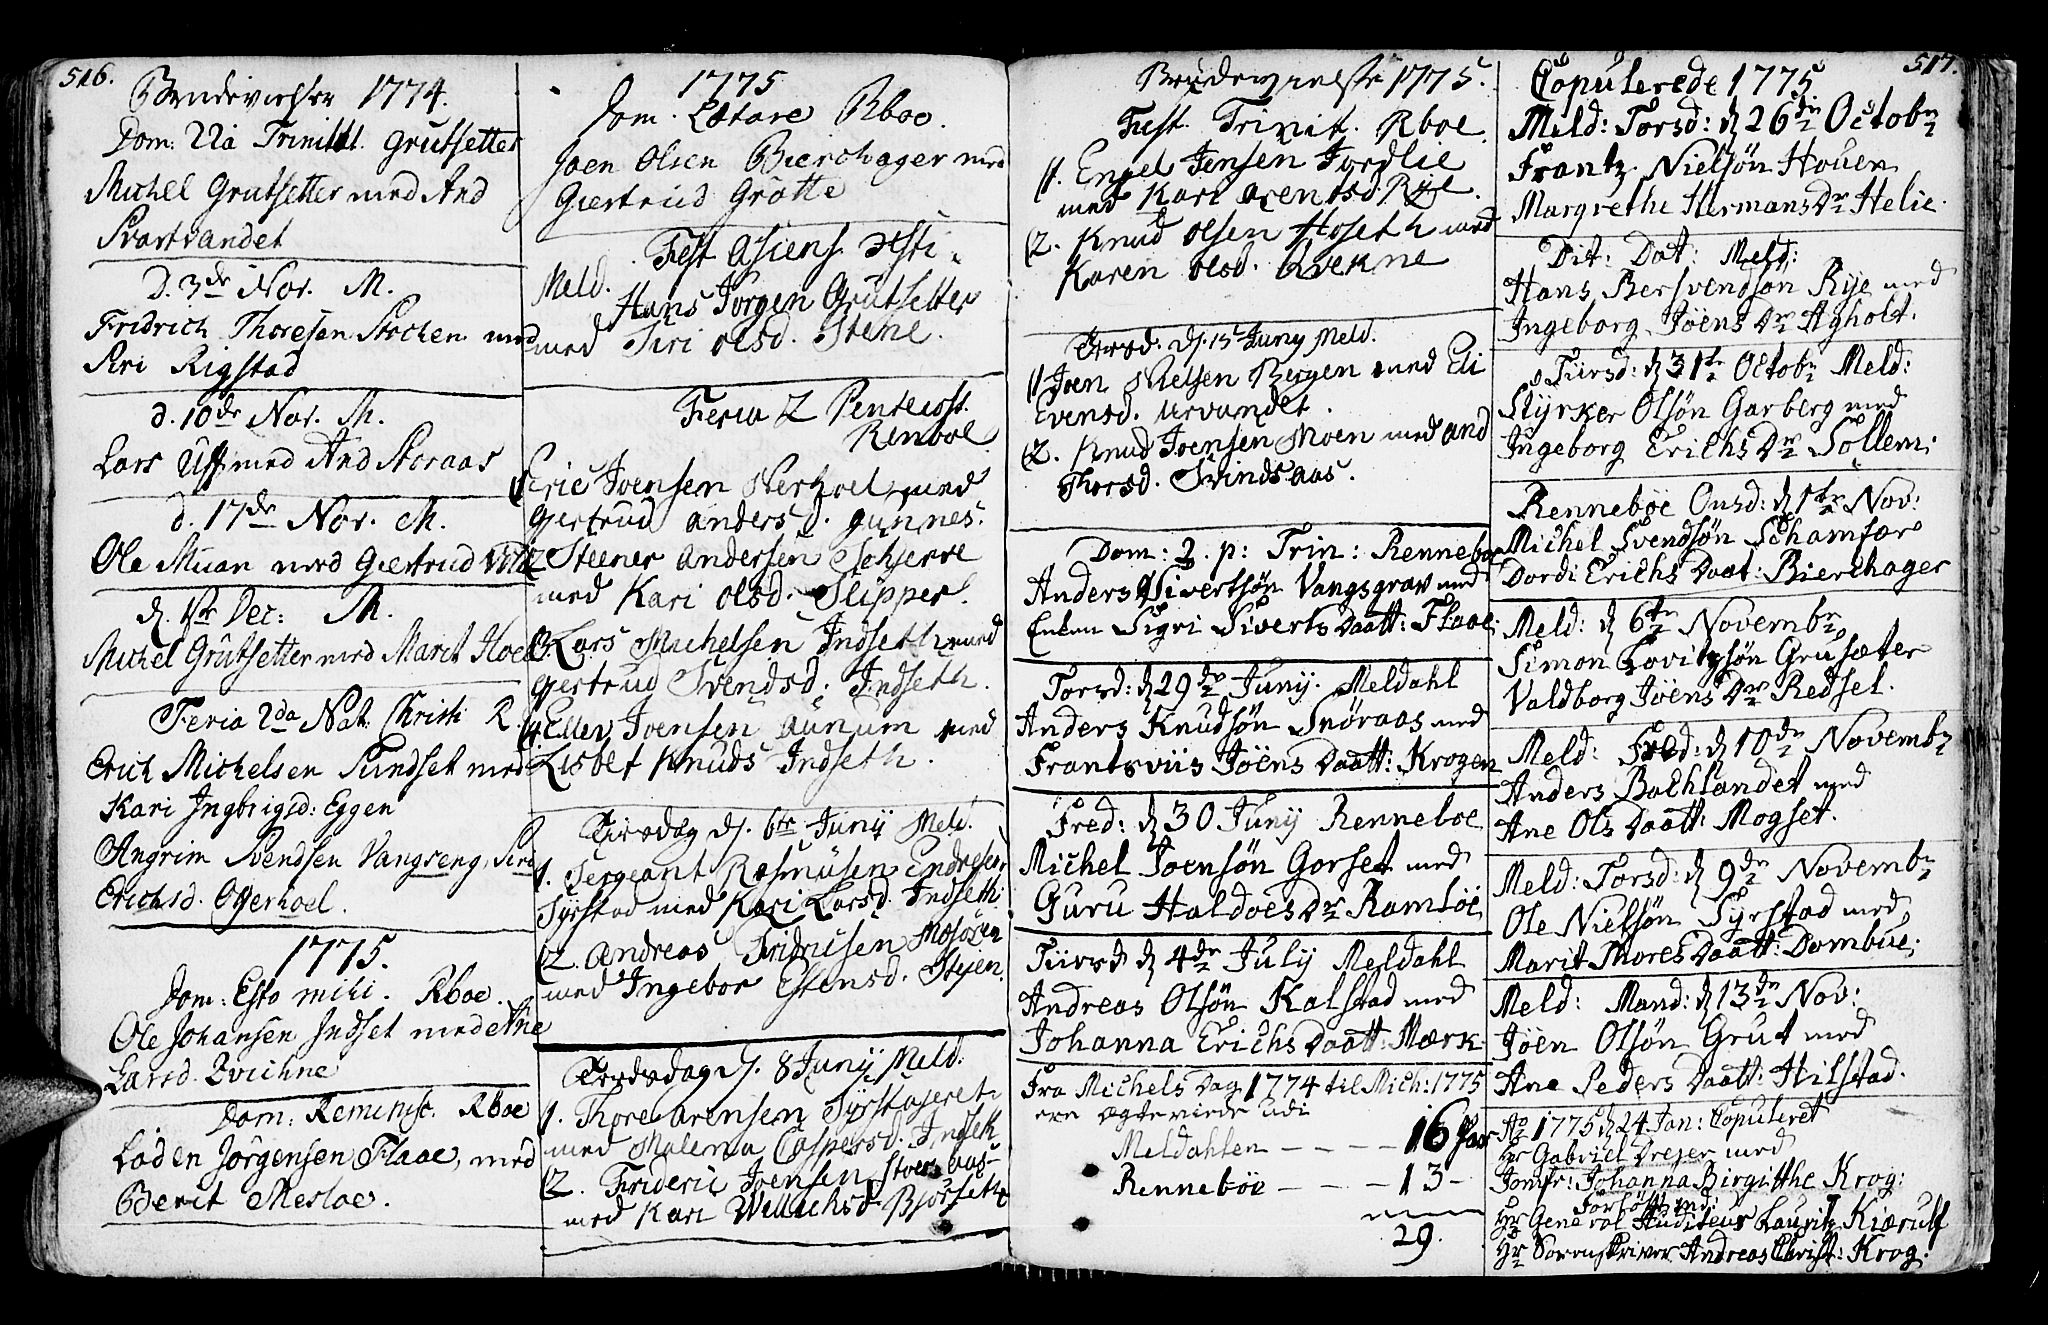 516.
Brudevielser 1774.
Dom: 22a Trinitt. Grutsetter
Michel Grutsetter med And
Svartvandet
D. 3de Nov. M.
Fridrich Thoresen Stochen med
Siri Rigstad
d. 10de Nov. M.
Lars Uff med And Storaas
d. 17de Nov. M.
Ole Muan med Giertrud
d. 1ste Dec: M.
Michel Grutsetter med Marit Hoel
Feria 2da Nat. Christi R.
Erich Michelsen Sundset med
Kari Ingbrigsd: Eggen
Angrim Svendsen Vangseng, Siri
Erichsd. Ogerhoel.
1775.
Dom: Esto mihi. Rboe.
Ole Johansen Indset med Ane
Larsd. Qvichne
Dom: Reminisc. Rboe
Loden Jørgensen Flaae, med
Berit Mesloe.
1775
Dom. Lætare Rboe.
Joen Olsen Bierchager med
Giertrud Grotte
Fest
Meld.
Hans Jørgen Grutsetter
med Siri Olsd. Stene.
Feria 2 Pentecost.
Renboe
1 Eric Joensen Nerhoel med
Giertrud Andersd. Gunnes.
2 Steener Andersen Schierve
med Kari Olsd. Slipper.
3 Lars Michelsen Indseth med
Gertrud Svendsd. Indseth.
4 Eller Joensen Aunum med
Lisbet Knuds Indseth.
Tirsdag d. 6te Junij Meld.
1. Sergeant Rasmusen Endresen
Syrstad med Kari Larsd. Indseth
2. Andreas Fridrisen Mosøren
med Ingebor Estensd. Steen.
Torsdag d. 8 Junij Meld.
1. Thore Arensen Syrstaseret:
med Malena Caspersd.
2. Frideric Joensen Storaas
med Kari Bjørseth
517.
Brudevielse 1775.
Fest. Trinit. Rboe.
1. Engel Jensen Jordlie
med Kari Arentsd. Rye.
2. Knud Olsen Hoseth med
Karen Olsd. Qvekne
Tirsd. d. 13 Juny Meld.
1 Joen Nielsen Bergen med Eli
Evensd. Urvandet.
2. Knud Joensen Moen med And
Thorsd. Svindsaas.
Dom: 2. p: Trin: Renneboe
Anders Sivertsøn Vangsgrav med
Enken Sigri Siverts Daatt: Flaae.
Torsd: d 29de Junij. Meldahl
Anders Knudsøn Snøraas med
Frantsviis Jøens Daatt: Krogen
Fred: d 30 Junij Renneboe
Michel Joensøn Gorset med
Guru Haldoes Dr Ramsøe
Tiirsd d 4de Julij Meldahl
Andreas Olsøn Kalstad med
Johanna Erichs Daatt: Mærk
Fra Michels Dag 1774 til Mich: 1775
ere Ægteviede udi
Meldahlen - - - 16 Par
Renneboe - - - 13 -
29.
Copulerede 1775
Meld: Torsd: d 26de Octobr
Frantz Nielsøn Houen
Margrethe Hermans Dr Helie.
Dit: Dat: Meld:
Hans Bersvendsøn Rye med
Ingeborg Jøens Dr Agholt.
Tiirsd: d 31te Octobr Meld:
Styrker Olsøn Garberg med
Ingeborg Erichs Dr Søllem:
Renneboe Onsd: d 1te Nov:
Michel Svendsøn Schamfær
Dordi Erichs Daat: Bierchager
Meld: d 6te Novembr
Simon Lovitzsøn Grusæter
Valdborg Jøens Dr Redset.
Meld: Fred: d 10de Novembr
Anders Bachlandet med
Ane Ols Daatt: Mogset.
Meld: Torsd: d 9de Novembr
Ole Nielsøn Syrstad med
Marit Thores Daatt: Dombue.
Meld: Mand: d 13de Nov:
Jøen Olsøn Grut med
Ane Peders Daatt: Hilstad.
Ao 1775 d 24 Jan: Copuleret
Hr Gabriel Dreyer med
Jomfr: Johanna Birgitthe Krog:
Forløftsmænd:
Hr General Auditeur Lauritz Kiærulf
Hr Sorenskriver Andreas Christ: Krog.